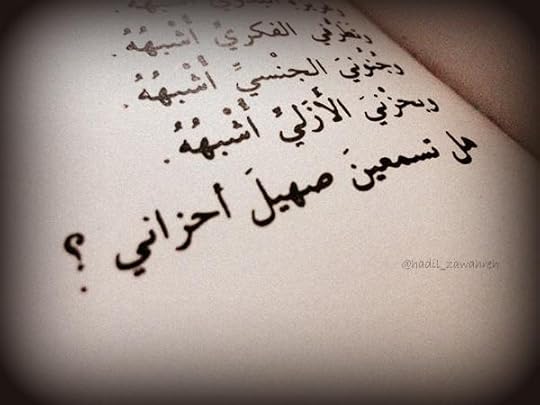 وتطرُّفي الفكريُّ أُشْبِهُهُ.
وجُنُوْنيَ الجِنْسيَّ أُشْبِهُهُ.
وبحزْنيَ الأَزَليُّ أُشْبِهُهُ.
هل تسمعينَ صهيلَ أحزاني ؟
@hadil_zawahreh